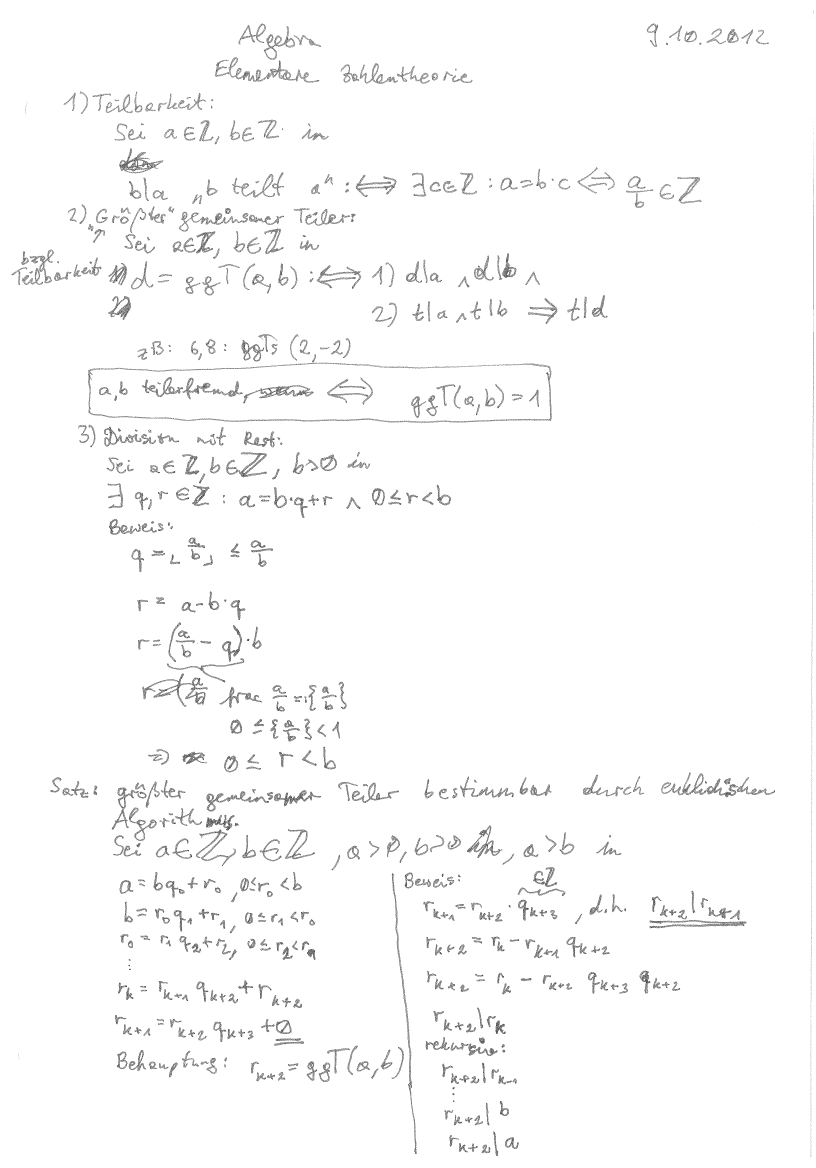 Algebra 9.10.2012
Elementare Zahlentheorie
1) Teilbarkeit:
Sei a∈ℤ, b∈ℤ in
b|a „b teilt a“ :⟺ ∃c∈ℤ : a=b·c ⟺ a/b ∈ℤ
2) „Größter“ gemeinsamer Teiler:
"↑ Sei a∈ℤ, b∈ℤ in
bzgl.
Teilbarkeit d = ggT(a,b) :⟺ 1) d|a ∧ d|b ∧
2) t|a ∧ t|b ⟹ t|d
zB: 6,8: ggTs (2,-2)
a,b teilerfremd, ⟺ ggT(a,b)=1
3) Division mit Rest:
Sei a∈ℤ, b∈ℤ, b>0 in
∃ q,r∈ℤ : a=b·q+r ∧ 0≤r<b
Beweis:
q = ⌊a/b⌋ ≤ a/b
r = a-b·q
r = (a/b - q)·b
frac a/b = {a/b}
0 ≤ {a/b} < 1
⇒ 0 ≤ r < b
Satz: größter gemeinsamer Teiler bestimmbar durch euklidischen
Algorithmus.
Sei a∈ℤ, b∈ℤ, a>0, b>0, a>b in
a = bq₀+r₀, 0≤r₀<b
b = r₀q₁+r₁, 0≤r₁<r₀
r₀ = r₁q₂+r₂, 0≤r₂<r₁
⋮
r_k = r_{k+1} q_{k+2} + r_{k+2}
r_{k+1} = r_{k+2} q_{k+3} + 0
Behauptung: r_{k+2} = ggT(a,b)
Beweis: ∈ℤ
r_{k+1} = r_{k+2} · q_{k+3}, d.h. r_{k+2}|r_{k+1}
r_{k+2} = r_k - r_{k+1} q_{k+2}
r_{k+2} = r_k - r_{k+2} q_{k+3} q_{k+2}
r_{k+2}|r_k
rekursiv:
r_{k+2}|r_{k-1}
⋮
r_{k+2}|b
r_{k+2}|a